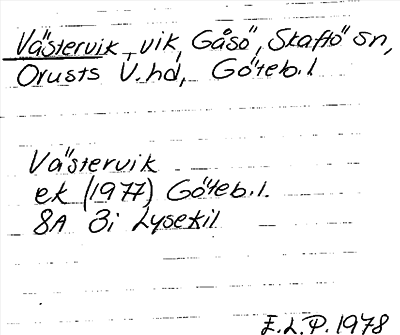 Västervik, vik, Gåsö, Skaftö sn,
Orusts V.hd, Göteb.l
Västervik
ek (1977) Göteb.l.
8A 3i Lysekil
E.L.P. 1978